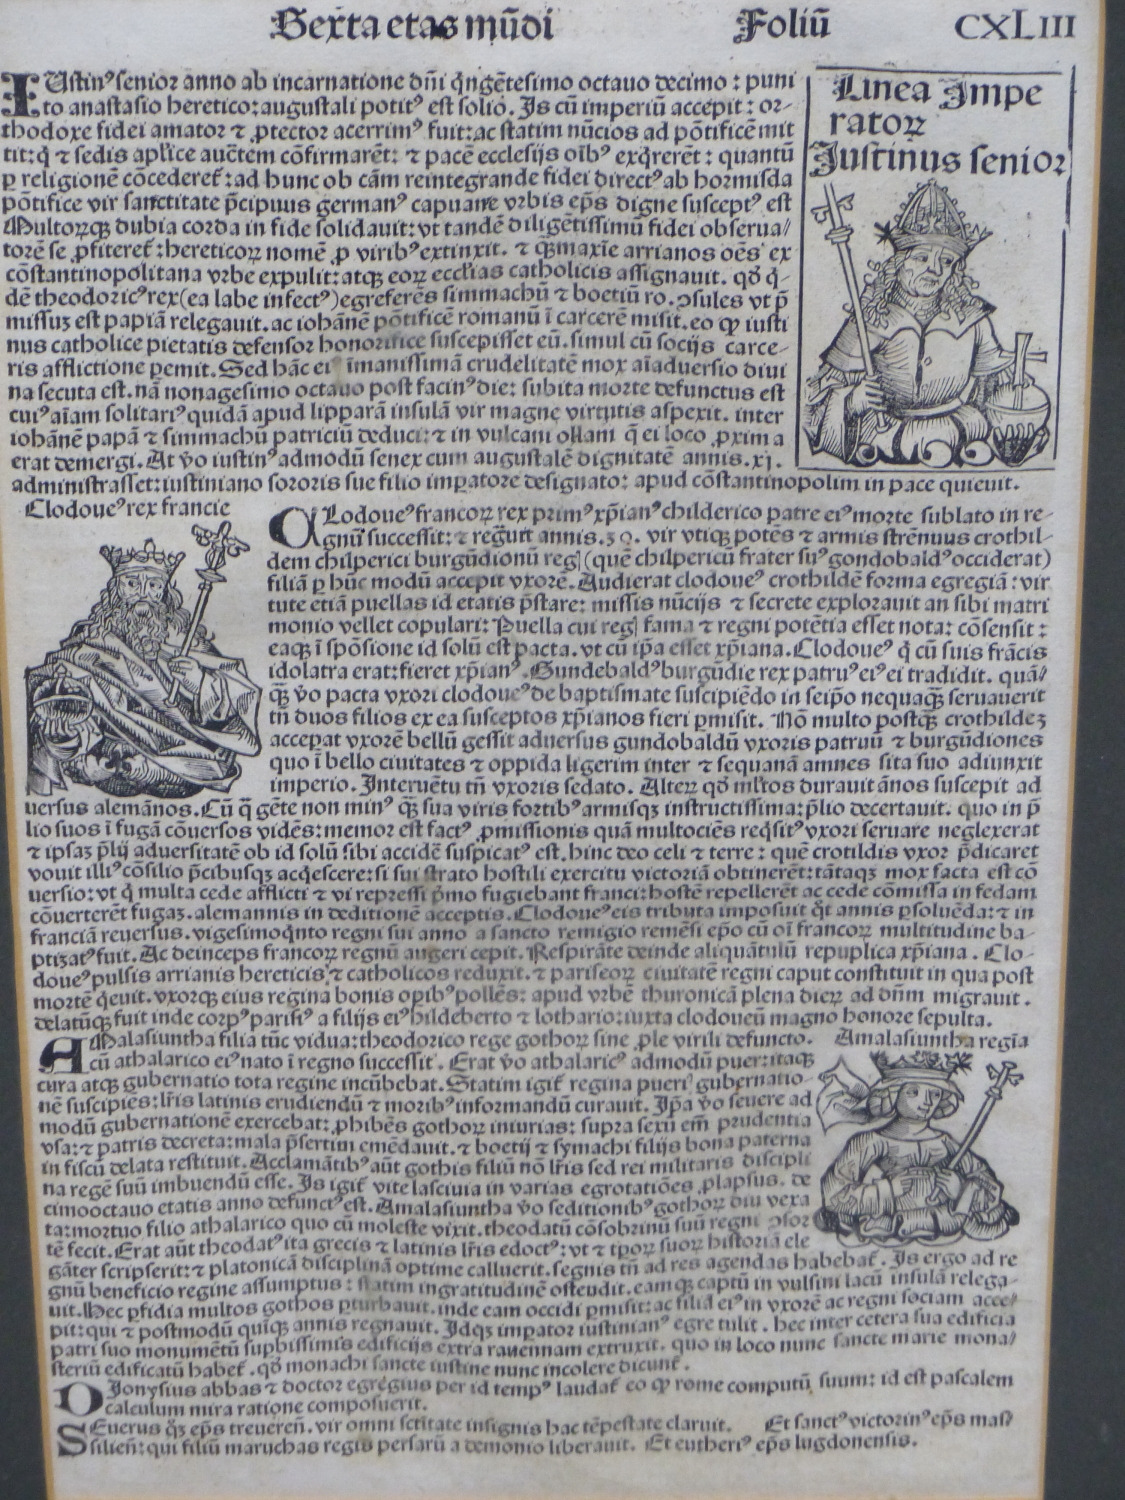 Sexta etas mūdi Foliū CXLIII
Linea Impe
ratoꝝ
Iustinus senior
IUstinꝰ senior anno ab incarnatione dn̄i q̄ngētesimo octauo decimo: puni
to anastasio heretico: augustali potitꝰ est solio. Is cū imperiū accepit: or-
thodoxe fidei amator ⁊ ꝓtector acerrimꝰ fuit: ac statim nūcios ad pōtificē mit
tit: q̇ ⁊ sedis apl'ice auctem cōfirmarēt: ⁊ pacē ecclesijs oībꝰ exq̇rerēt: quantū
ꝑ religionē cōcederet᷑: ad hunc ob cām reintegrande fidei directꝰ ab hormisda
pōtifice vir sanctitate p̄cipuus germanꝰ capuane vrbis ep̄s digne susceptꝰ est
Multorꝙ dubia corda in fide solidauit: vt tandē diligētissimū fidei obserua/
torē se ꝓfiteret᷑: hereticoꝝ nomē ꝓ viribꝰ extinxit. ⁊ q̄maxīe arrianos oēs ex
cōstantinopolitana vrbe expulit: atqꝫ eoꝝ eccl'ias catholicis assignauit. qd̄ q̇-
dē theodoricꝰ rex (ea labe infectꝰ) egreferēs simmachū ⁊ boetiū ro. ↄsules vt p̄
missuꝫ est papiā relegauit. ac iohānē pōtificē romanū ī carcerē misit. eo ꝙ iusti
nus catholice pietatis defensor honorifice suscepisset eū. simul cū socijs carce-
ris afflictione ꝑemit. Sed hāc eiꝰ īmanissimā crudelitatē mox aīaduersio diui
na secuta est. nā nonagesimo octauo post facinꝰ die: subita morte defunctus est
cuiꝰ aīam solitariꝰ quidā apud lipparā insulā vir magne virtutis aspexit. inter
iohānē papā ⁊ simmachū patriciū deduci: ⁊ in vulcani ollam q̄ ei loco ꝓxima
erat demergi. At v̄o iustinꝰ admodū senex cum augustalē dignitatē annis .xj.
administrasset: iustiniano sororis sue filio impatore designato: apud cōstantinopolim in pace quieuit.
Clodoueꝰ rex francie
CLodoueꝰ francoꝝ rex primꝰ xp̄ianꝰ childerico patre eiꝰ morte sublato in re-
gnū successit: ⁊ regn̄it annis .30. vir vtiqꝫ potēs ⁊ armis strēnuus crothil-
dem chilperici burgūdionū reg (quē chilpericū frater suꝰ gondobaldꝰ occiderat)
filiā ꝑ hūc modū accepit vxorē. Audierat clodoueꝰ crothildē forma egregiā: vir
tute etiā puellas id etatis p̄stare: missis nūcijs ⁊ secrete explorauit an sibi matri
monio vellet copulari: Puella cui reg fama ⁊ regni potētia esset nota: cōsensit:
eaqꝫ ī spōsione id solū est pacta. vt cū ip̄a esset xp̄iana. Clodoueꝰ q̇ cū suis frācis
idolatra erat: fieret xp̄ianꝰ. Gundebaldꝰ burgūdie rex patruꝰ eiꝰ ei tradidit. quā/
qꝫ v̄o pacta vxori clodoueꝰ de baptismate suscipiēdo in seip̄o nequaqꝫ seruauerit
tn̄ duos filios ex ea susceptos xp̄ianos fieri ꝑmisit. Nō multo postqꝫ crothildeꝫ
acceꝑat vxorē bellū gessit aduersus gundobaldū vxoris patruū ⁊ burgūdiones
quo ī bello ciuitates ⁊ oppida ligerim inter ⁊ sequanā amnes sita suo adiunxit
imperio. Interuētu tn̄ vxoris sedato. Alteꝝ qd̄ ml'tos durauit ānos suscepit ad
uersus alemānos. Cū q̄ gēte non minꝰ qꝫ sua viris fortibꝰ armisqꝫ instructissima: p̄lio decertauit. quo in p̄
lio suos ī fugā cōuersos vidēs: memor est factꝰ ꝓmissionis quā multociēs req̇sitꝰ vxori seruare neglexerat
⁊ ipsaꝫ p̄lij aduersitatē ob id solū sibi accidē suspicatꝰ est. hinc deo celi ⁊ terre: quē crotildis vxor p̄dicaret
vouit illiꝰ cōsilio p̄cibusqꝫ acq̇escere: si sui strato hostili exercitu victoriā obtinerēt: tātaqꝫ mox facta est cō
uersio: vt q̇ multa cede afflicti ⁊ vi repressi p̄mo fugiebant franci: hostē repellerēt ac cede cōmissa in fedam
cōuerterēt fugaꝫ. alemannis in deditionē acceptis. Clodoueꝰ eis tributa imposuit q̄t annis ꝑsoluēda: ⁊ in
franciā reuersus. vigesimoq̇nto regni sui anno a sancto remigio remēsi ep̄o cū oī francoꝝ multitudine ba-
ptiꝫatꝰ fuit. Ac deinceps francoꝝ regnū augeri cepit. Respirāte deinde aliquātulū republica xp̄iana. Clo-
doueꝰ pulsis arrianis hereticis ⁊ catholicos reduxit. ⁊ pariseoꝝ ciuitatē regni caput constituit in qua post
mortē q̇euit. vxorqꝫ eius regina bonis opibꝰ pollēs: apud vrbē thuronicā plena dieꝝ ad dn̄m migrauit.
delatūqꝫ fuit inde corpꝰ parisiꝰ a filijs eiꝰ hildeberto ⁊ lothario: iuxta clodoueū magno honore sepulta.
Amalasiuntha regīa
AMalasiuntha filia tūc vidua: theodorico rege gothoꝝ sine ꝓle virili defuncto.
cū athalarico eiꝰ nato ī regno successit. Erat v̄o athalaricꝰ admodū puer: itaqꝫ
cura atqꝫ gubernatio tota regine incūbebat. Statim igit᷑ regina pueri gubernatio-
nē suscipies: lr̄is latinis erudiendū ⁊ moribꝰ informandū curauit. Ip̄a v̄o seuere ad
modū gubernationē exercebat: ꝓhibēs gothoꝝ iniurias: supra sexū em̄ prudentia
vsa: ⁊ patris decreta: mala p̄sertim emēdauit. ⁊ boetij ⁊ symachi filijs bona paterna
in fiscū delata restituit. Acclamātibꝰ aūt gothis filiū nō lr̄is sed rei militaris discipli
na regē suū imbuendū esse. Is igit᷑ vite lasciuia in varias egrotatiōes ꝓlapsus. de
cimooctauo etatis anno defunctꝰ est. Amalasiuntha v̄o seditionibꝰ gothoꝝ diu vexa
ta: mortuo filio athalarico quo cū moleste vixit. theodatū cōsobrinū suū regni ↄsor
tē fecit. Erat aūt theodatꝰ ita grecis ⁊ latinis lr̄is edoctꝰ: vt ⁊ tp̄oꝝ suoꝝ historiā ele
gāter scripserit: ⁊ platonicā disciplinā optime calluerit. segnis tn̄ ad res agendas habebat᷑. Is ergo ad re
gnū beneficio regine assumptus: statim ingratitudinē ostendit. eamqꝫ captū in vulsini lacū insulā relega-
uit. Hec ꝑfidia multos gothos ꝑturbauit. inde eam occidi ꝑmisit: ac filiā eiꝰ in vxorē ac regni sociam acce/
pit: qui ⁊ postmodū quīqꝫ annis regnauit. Idqꝫ imꝑator iustinianꝰ egre tulit. hec inter cetera sua edificia
patri suo monumētū supbissimis edificijs extra rauennam extruxit. quo in loco nunc sancte marie mona/
steriū edificatū habet᷑. qd̄ monachi sancte iustine nunc incolere dicunt᷑.
DIonysius abbas ⁊ doctor egregius per id tempꝰ laudat᷑ eo ꝙ rome computū suum: id est pascalem
calculum mira ratione composuerit.
SEuerus qꝫ ep̄s treueren̄. vir omni sctitate insignis hac tēpestate claruit. Et sanctꝰ victorinꝰ ep̄s mas/
silien̄: qui filiū maruchas regis persarū a demonio liberauit. Et eutheriꝰ ep̄s lugdonensis.